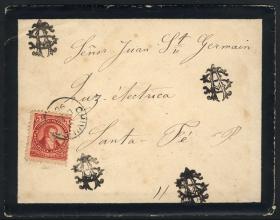 Señor Juan St. Germain
Luz eléctrica
Santa-Fé